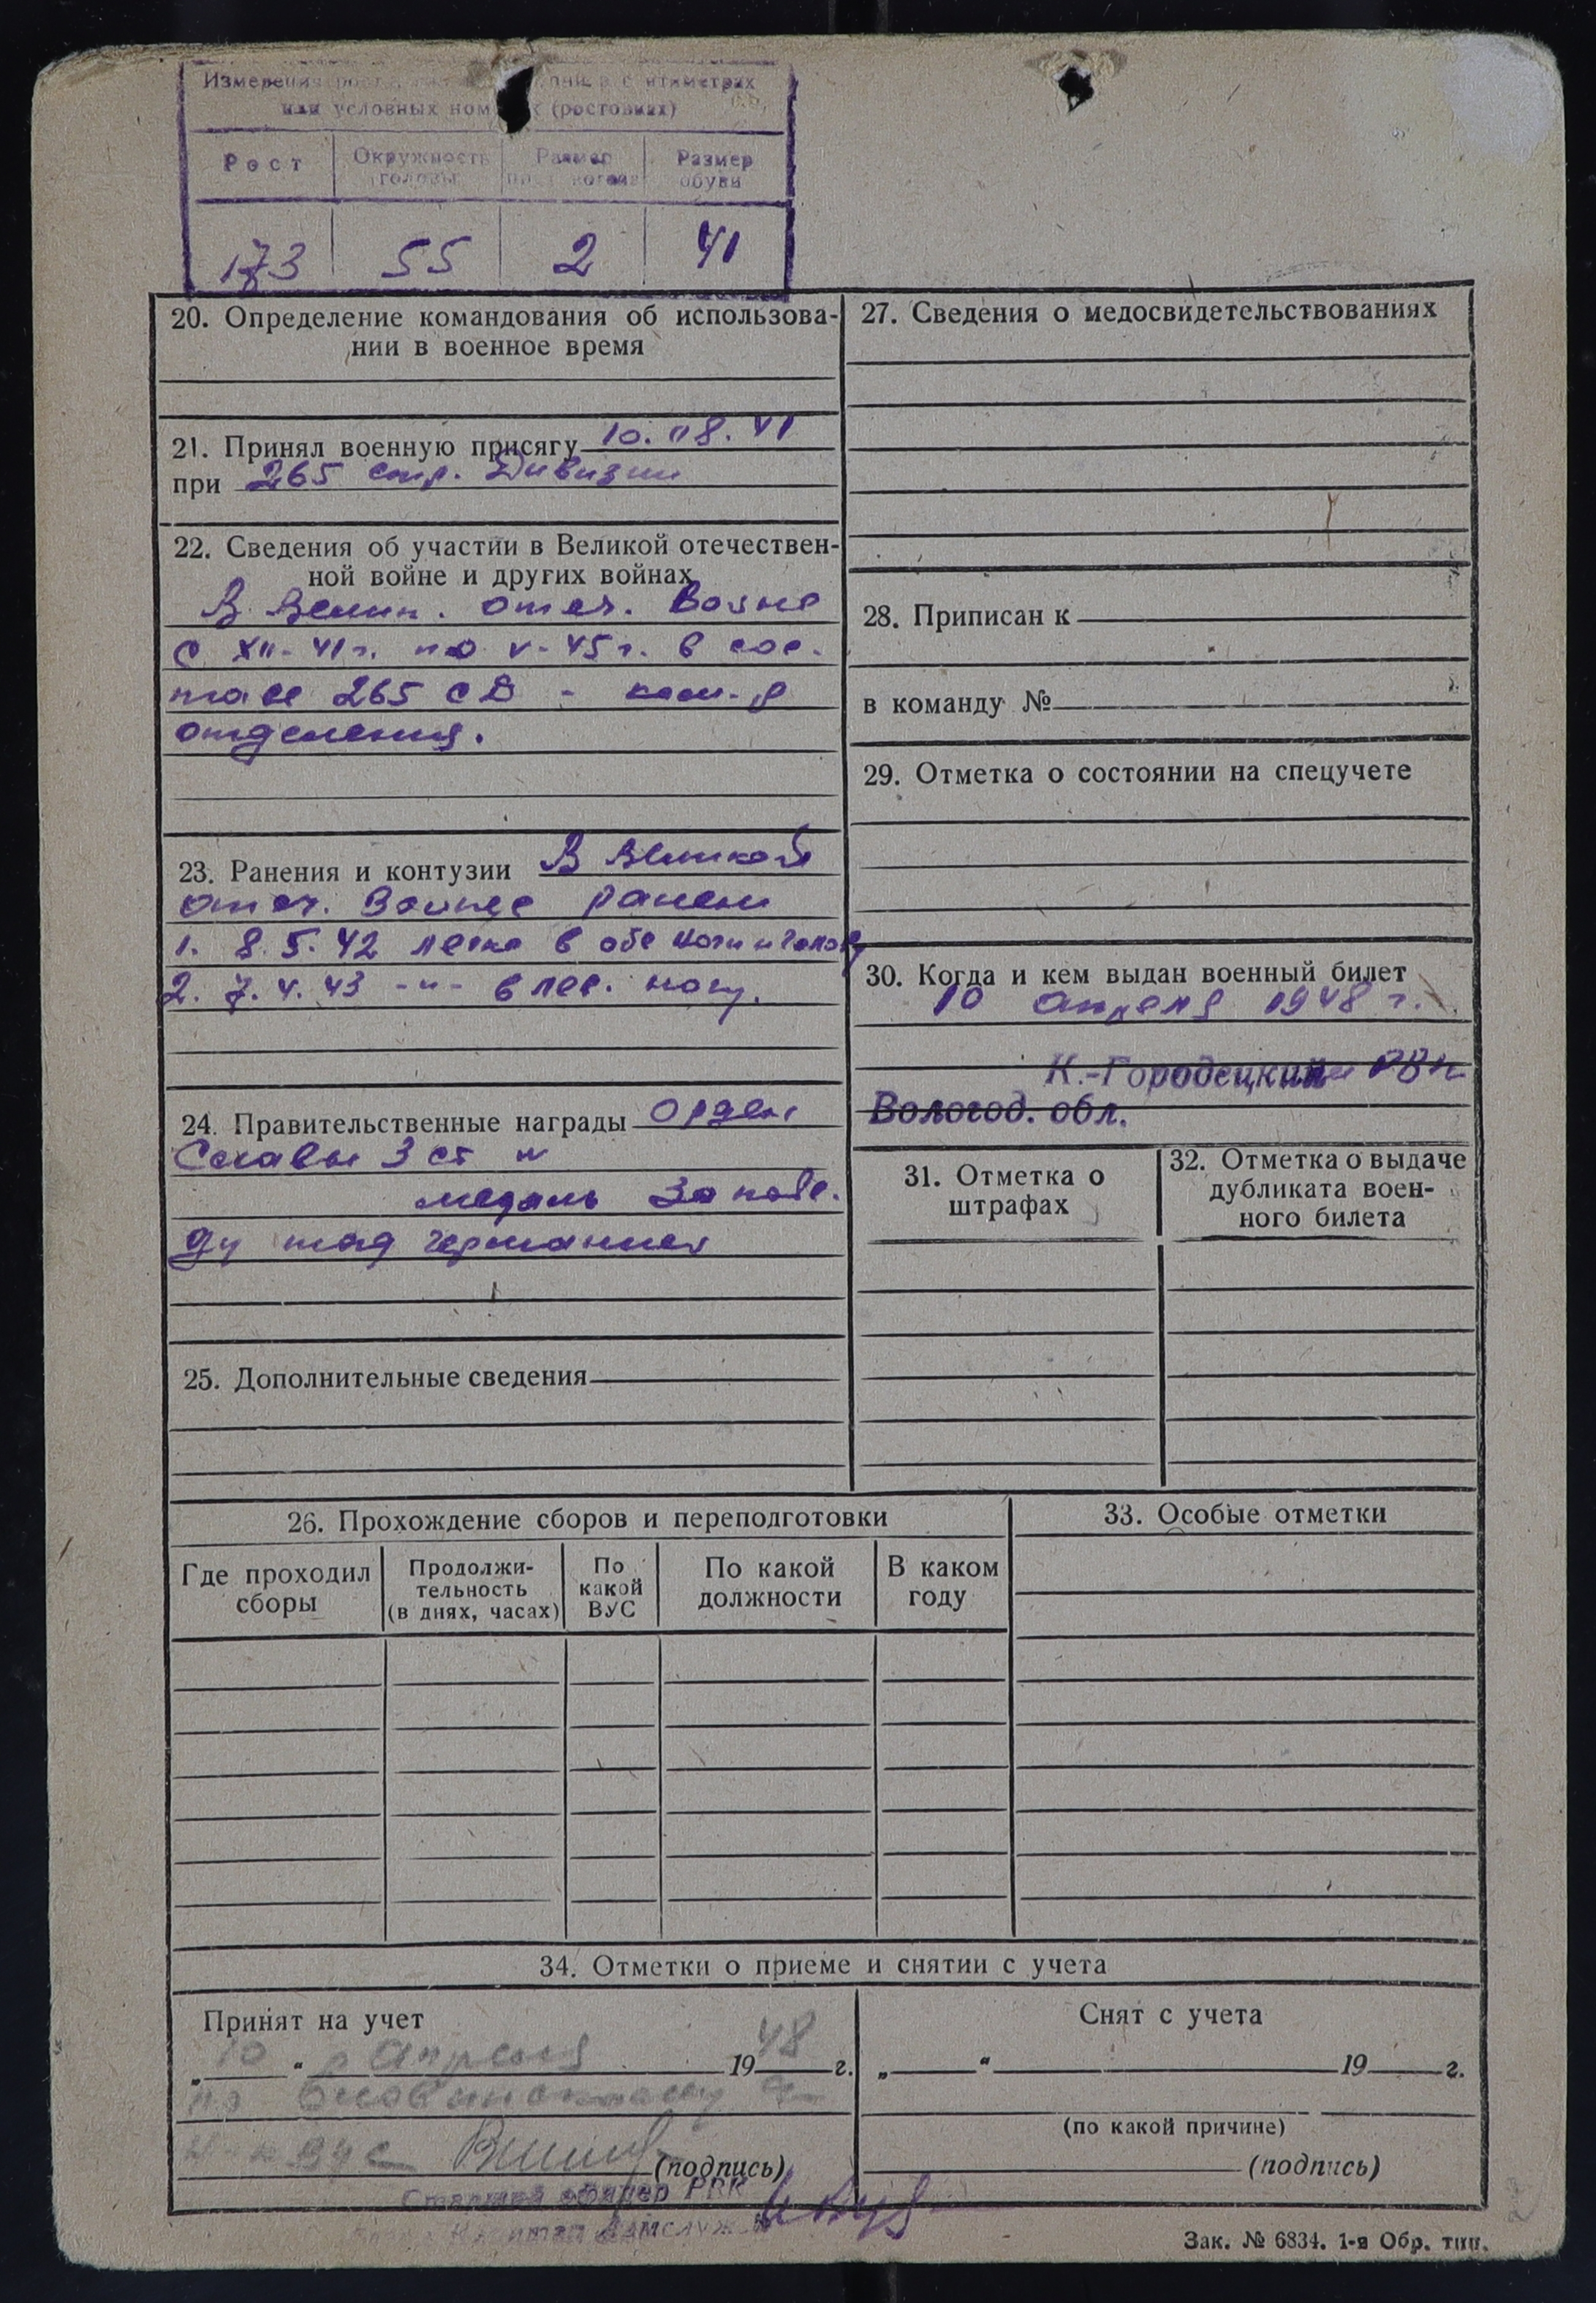 Измерения
или условных (ростовках)
Рост
Окружность
головы
Размер
Размер
обуви
173
55
2
41
20. Определение командования об использова-
нии в военное время
21. Принял военную присягу 10.08.41
при 265 стр. Дивизии
22. Сведения об участии в Великой отечествен-
ной войне и других войнах
В Велик. отеч. войне
с XII-41г. по V-45г. в сос-
таве 265 СД - ком-р
отделения.
23. Ранения и контузии В Великой
отеч. Войне ранен
1. 8.5.42 легко в обе ноги и голову
2. 7.4.43 -"- в лев. ногу.
24. Правительственные награды Орден
Славы 3 ст и
медаль За побе-
ду над Германией
25. Дополнительные сведения
26. Прохождение сборов и переподготовки
Где проходил
сборы
Продолжи-
тельность
(в днях, часах)
По
какой
ВУС
По какой
должности
В каком
году
27. Сведения о медосвидетельствованиях
28. Приписан к
в команду №
29. Отметка о состоянии на спецучете
30. Когда и кем выдан военный билет
10 апреля 1948 г.
К.-Городецким РВК
Вологод. обл.
31. Отметка о
штрафах
32. Отметка о выдаче
дубликата воен-
ного билета
33. Особые отметки
34. Отметки о приеме и снятии с учета
Принят на учет
„ 10 “ апреля 1948 г.
по
(подпись)
Старший офицер РВК
Снят с учета
„ “ 19 г.
(по какой причине)
(подпись)
Зак. № 6834. 1-я Обр. тип.